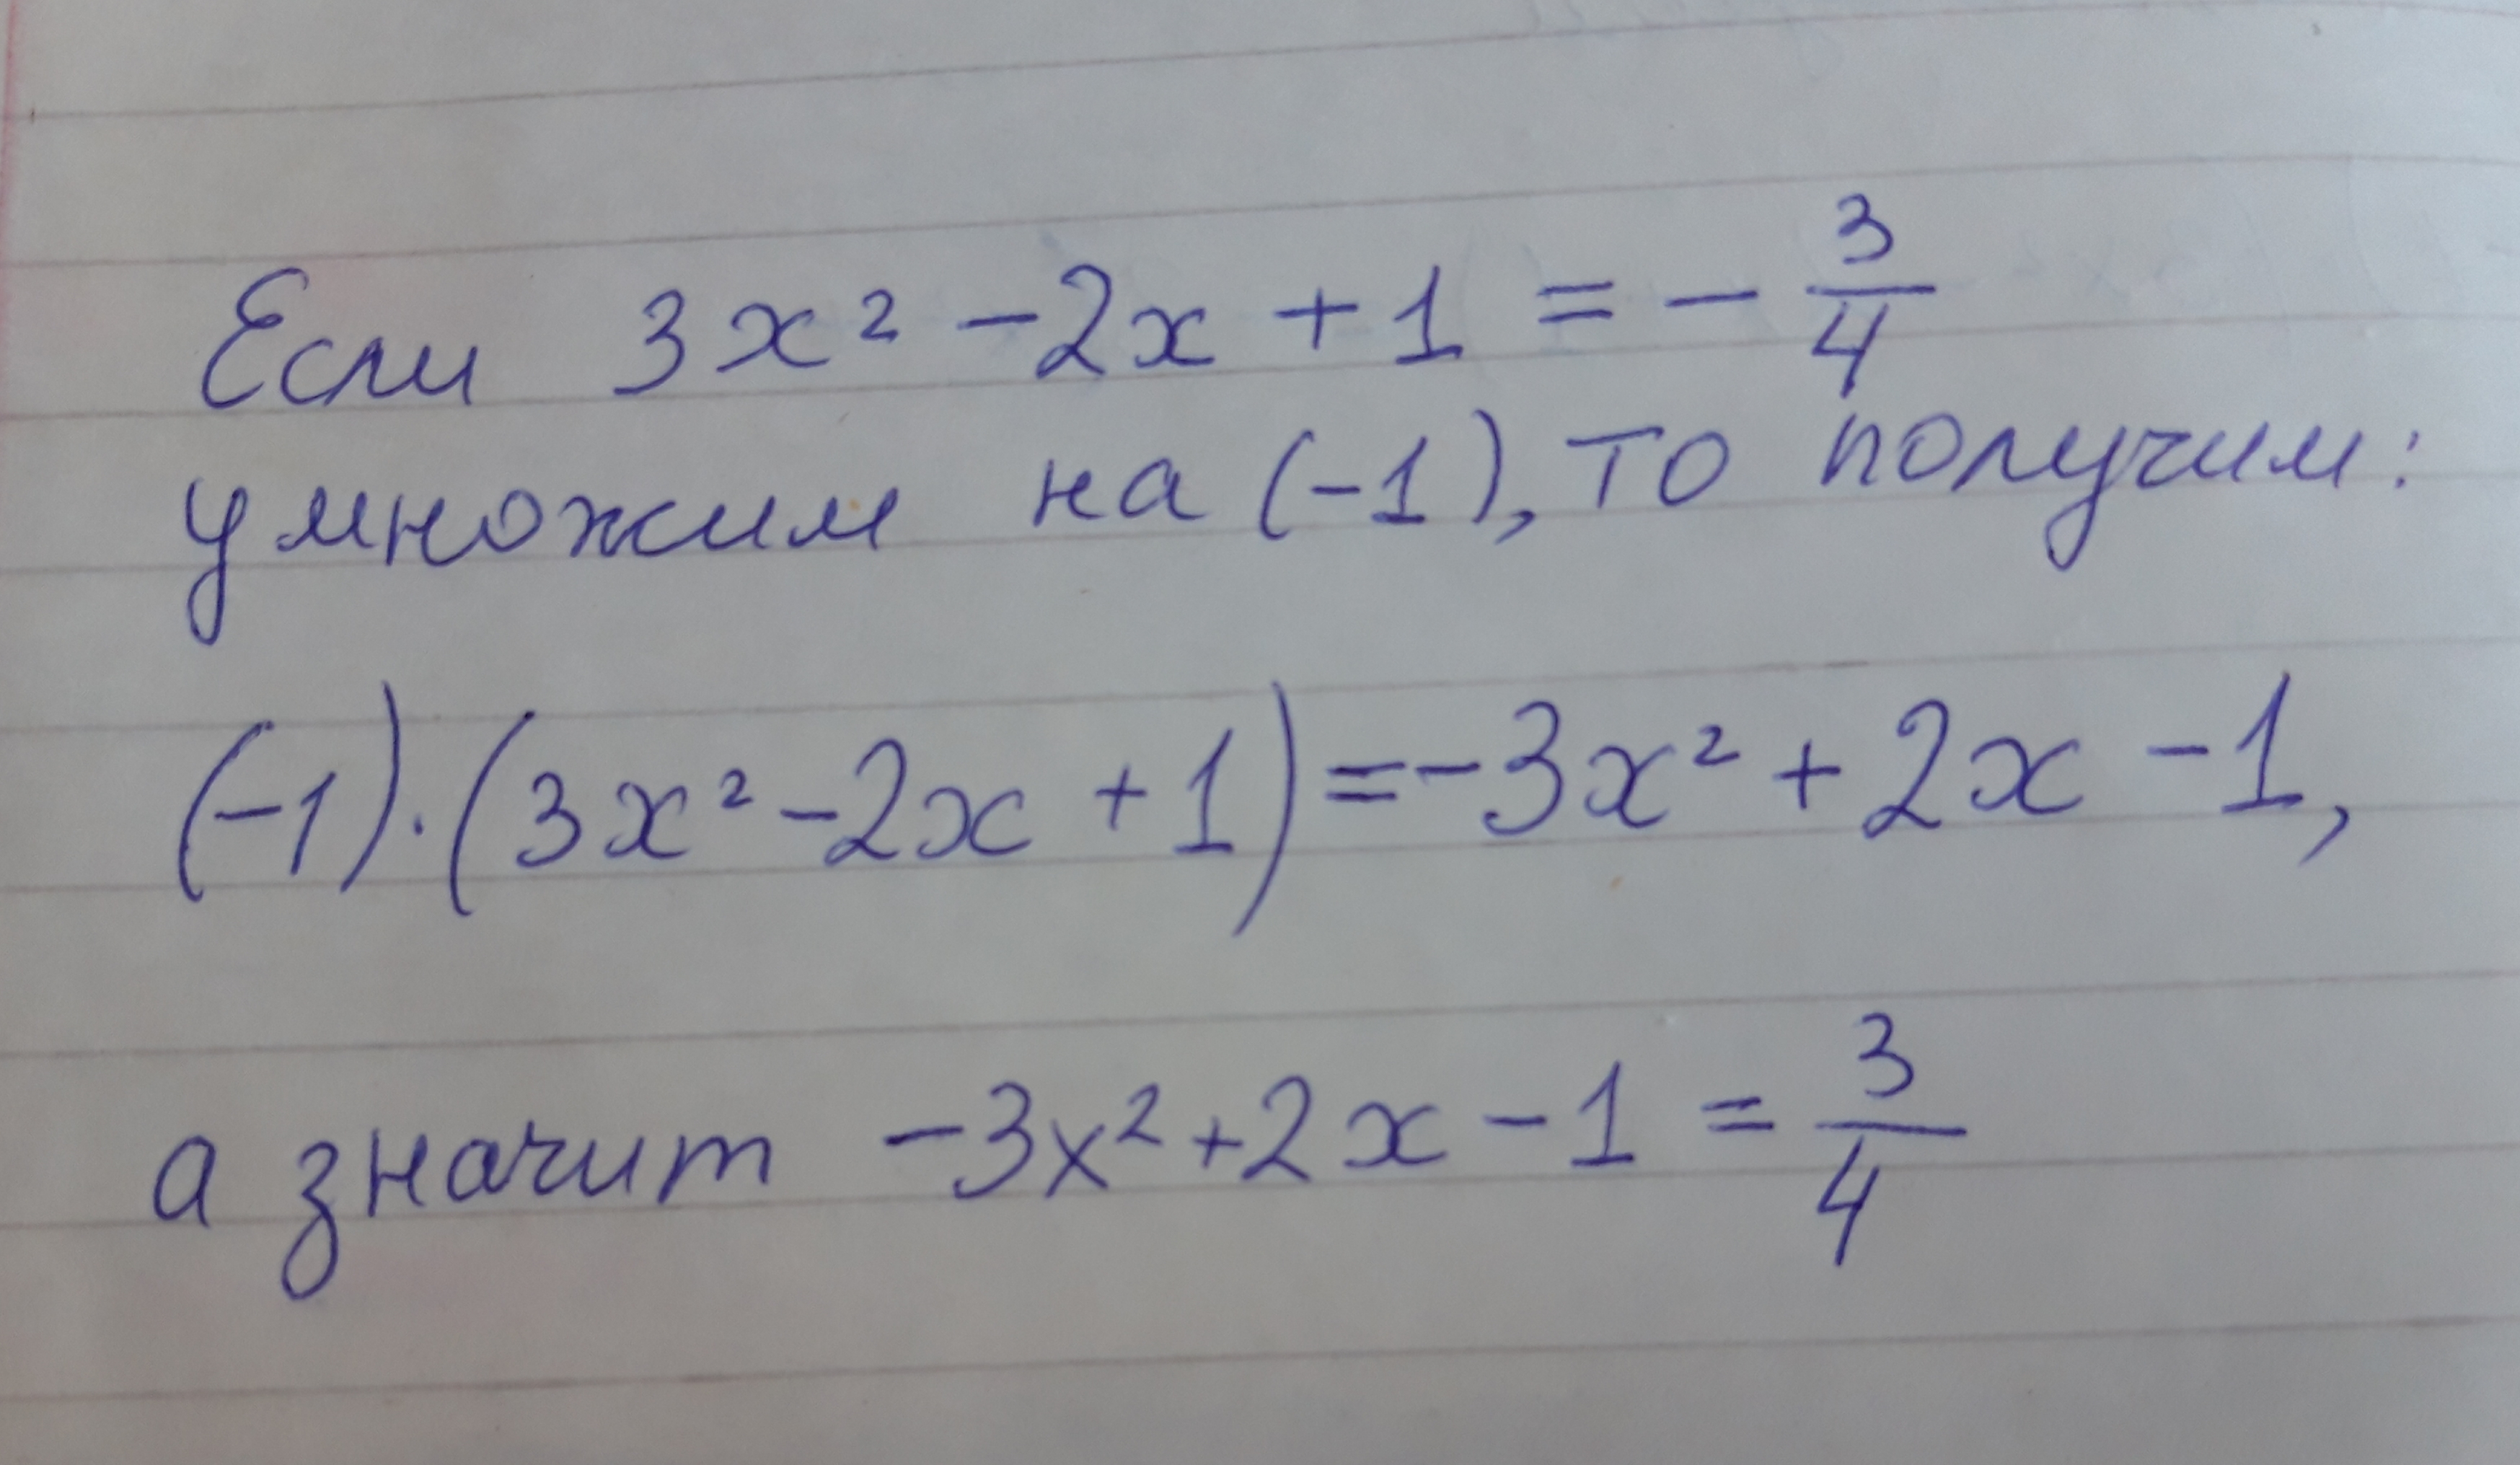 Если 3x² - 2x + 1 = - 3/4
умножим на (-1), то получим:
(-1)·(3x² - 2x + 1) = -3x² + 2x - 1,
а значит -3x² + 2x - 1 = 3/4